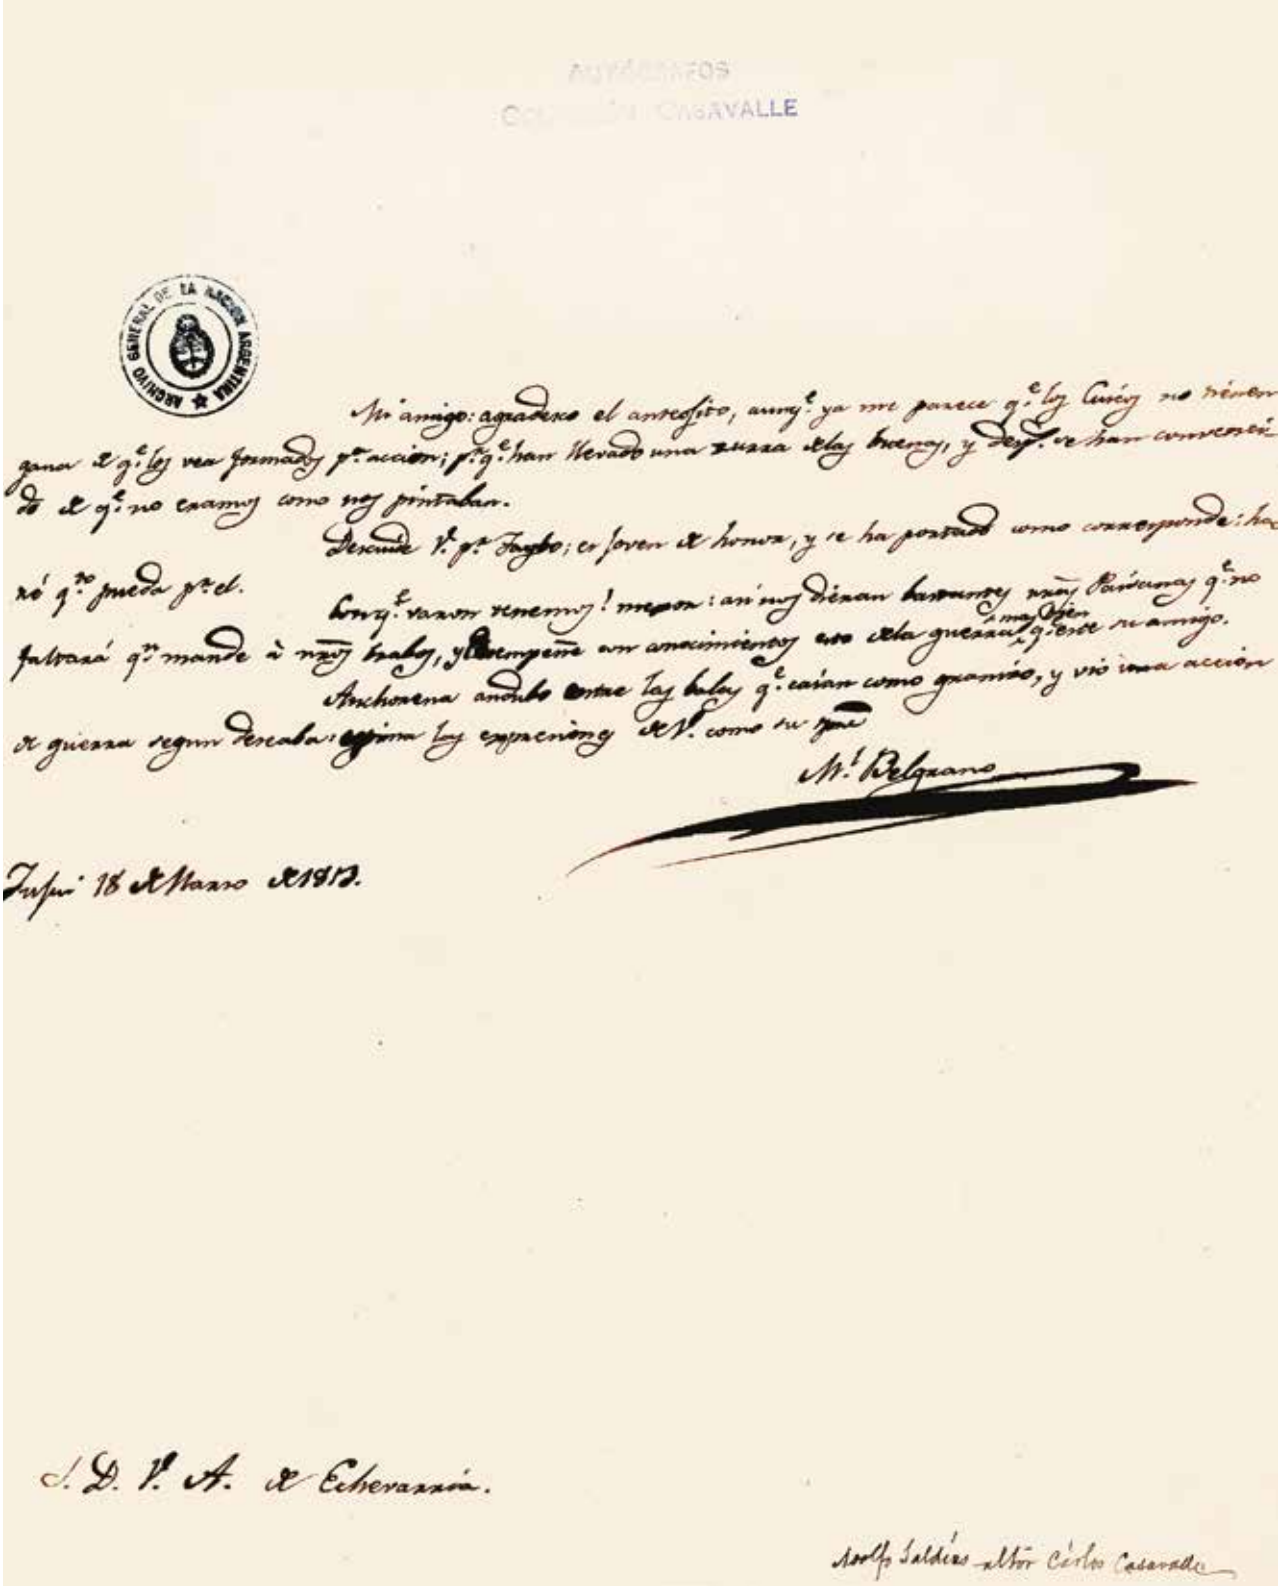 AUTÓGRAFOS
COLECCIÓN CASAVALLE
ARCHIVO GENERAL DE LA NACION ARGENTINA
Mi amigo: agradesco el anteojito, aunq.e ya me parece q.e los Cuicos no tienen
gana de q.e los vea formados p.a accion; p.r q.e han llevado una zurra de las buenas, y desp.s se han convenci
do de q.e no eramos como nos pintaban.
Descuide V. p.r ; es joven de honor, y se ha portado como corresponde: ha
ré q.to pueda p.r el.
Conq.e varon tenemos! mejor: asi nos dieran bastantes nras Paisanas q.e no
mas bien
faltará q.n mande à nros , y desempeñe con conocimientos esto de la guerra q.e este su amigo.
Anchorena andubo entre las balas q.e caían como granizo, y vió una acción
de guerra segun deseaba: estima las expresiones de V. como su
M.l Belgrano
Jujui 18 de Marzo de 1813.
S. D. V. A. de Echevarria.
Adolfo Saldías Carlos Casavalle